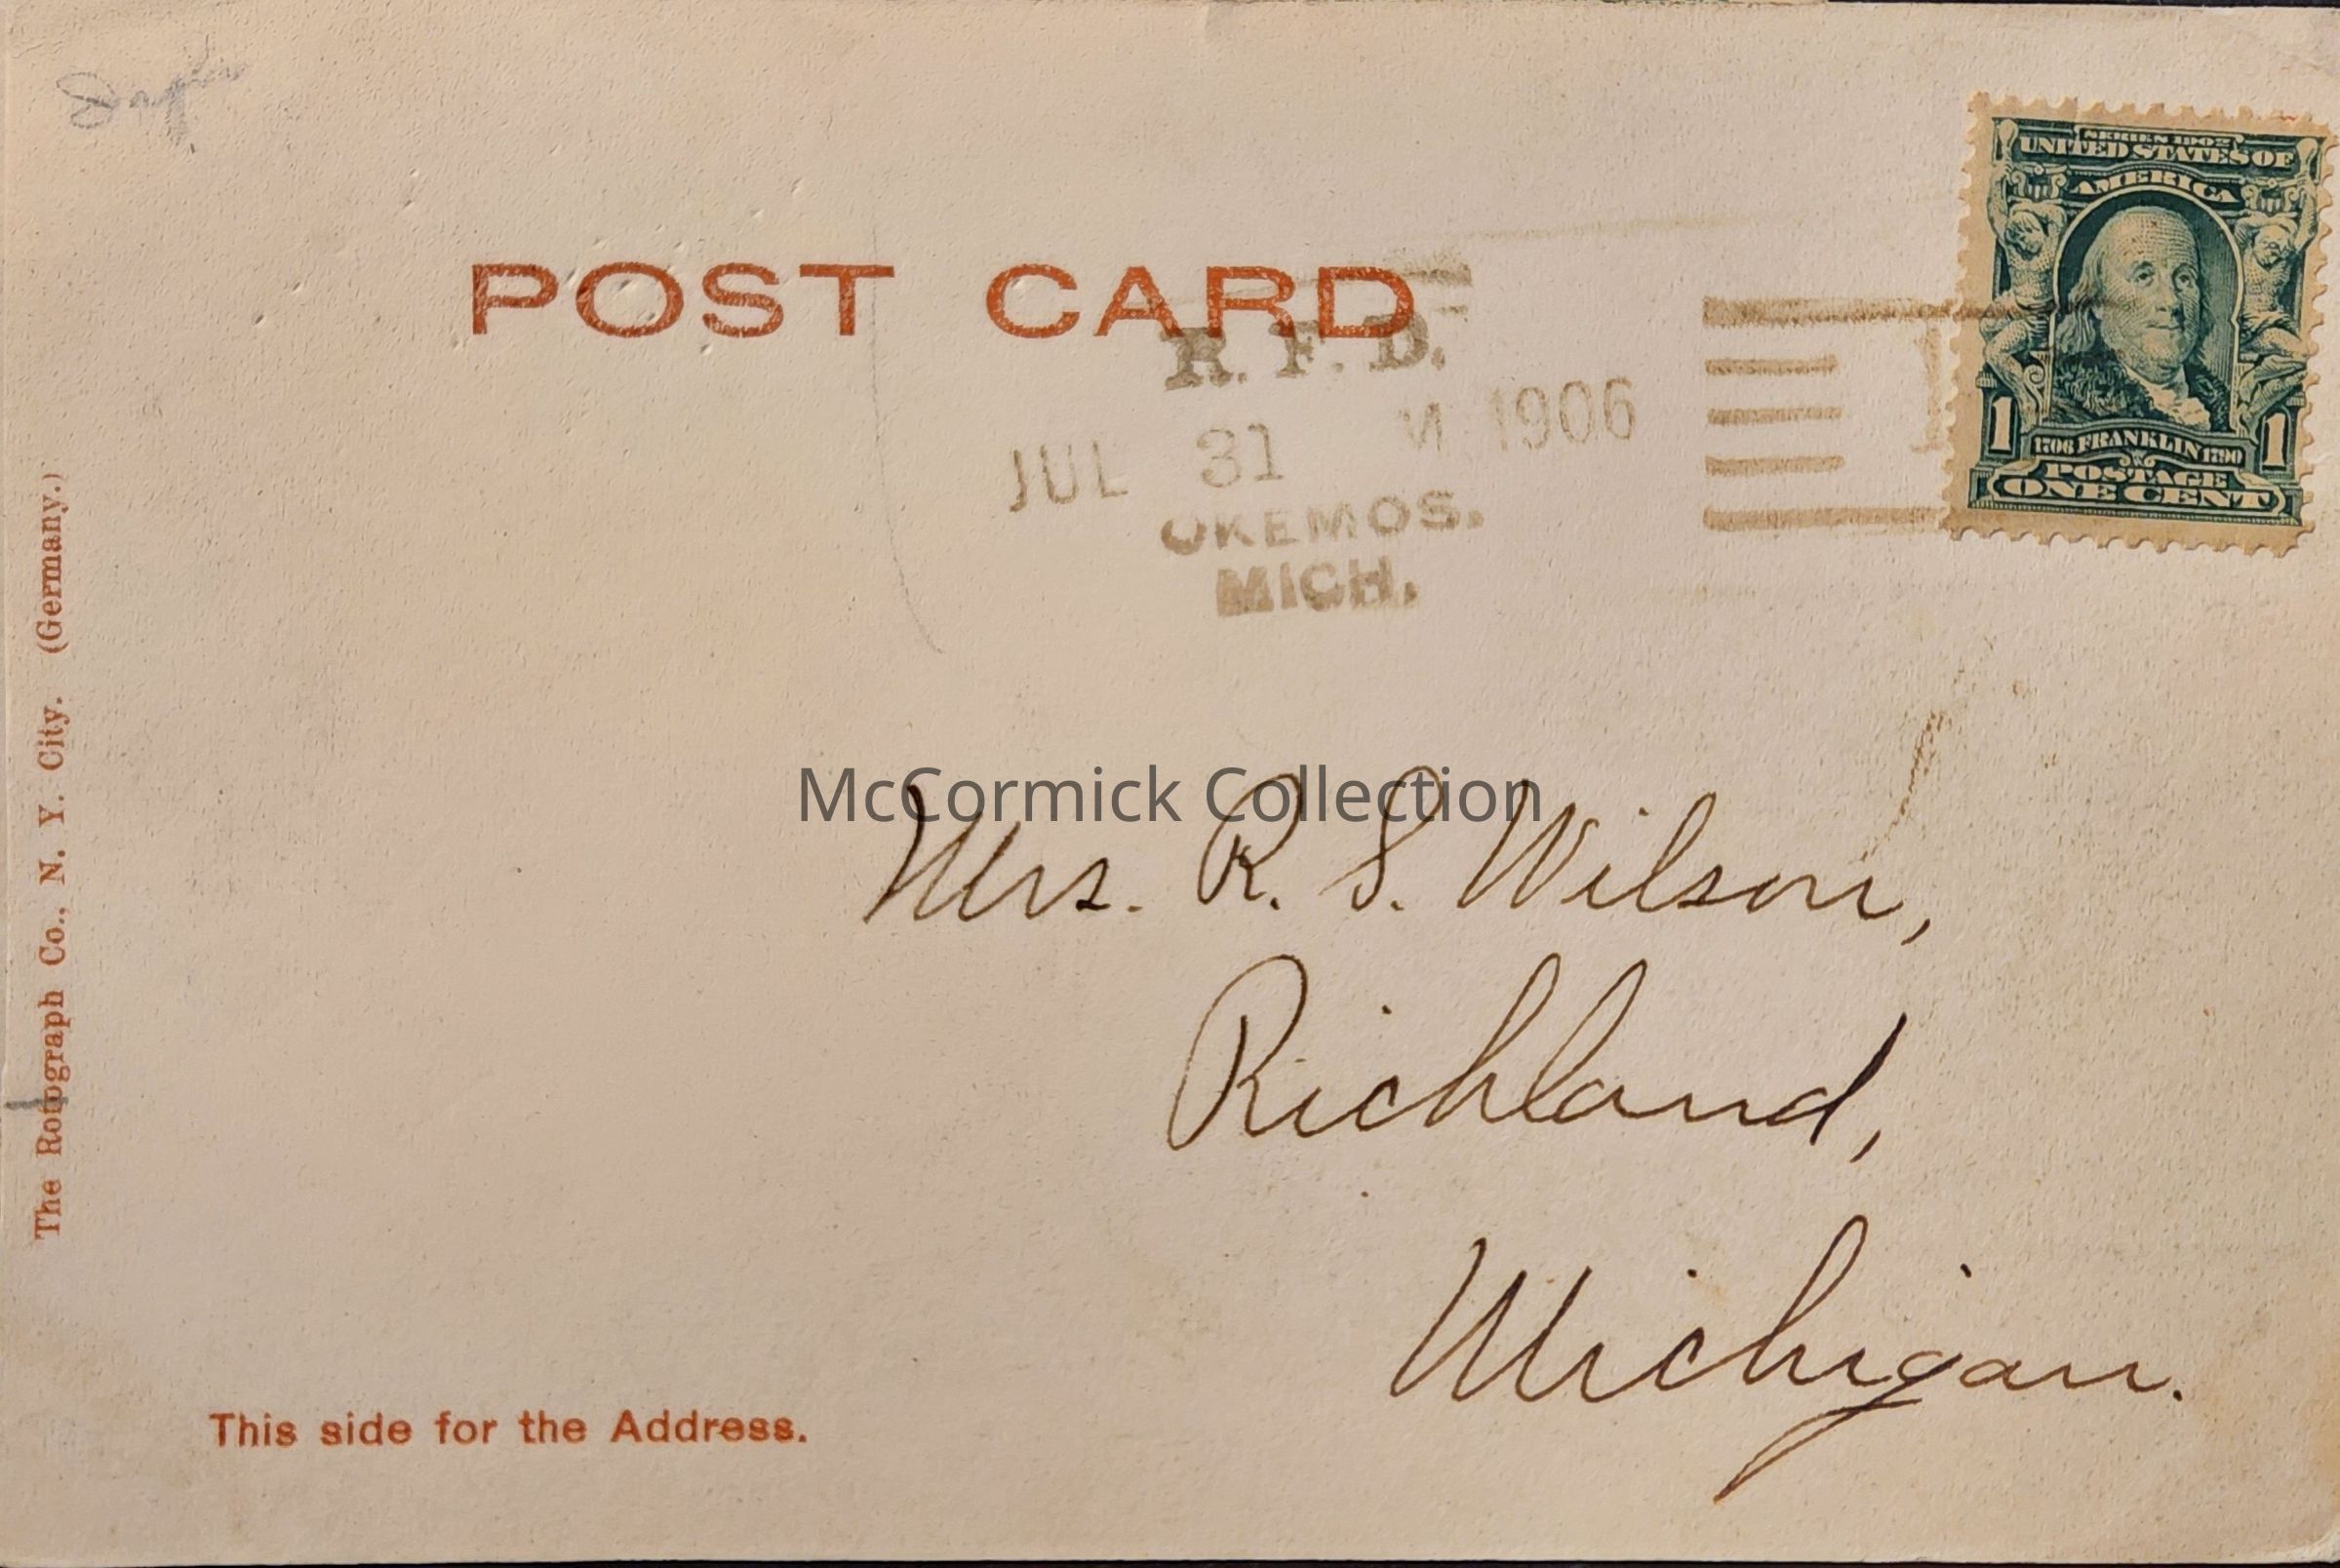 POST CARD
R. F. D.
JUL 31 M 1906
OKEMOS.
MICH.
SERIES 1902
UNITED STATES OF
AMERICA
1 1706 FRANKLIN 1790 1
POSTAGE
ONE CENT
McCormick Collection
Mrs. R. S. Wilson,
Richland,
Michigan.
The Rotograph Co., N. Y. City. (Germany.)
This side for the Address.